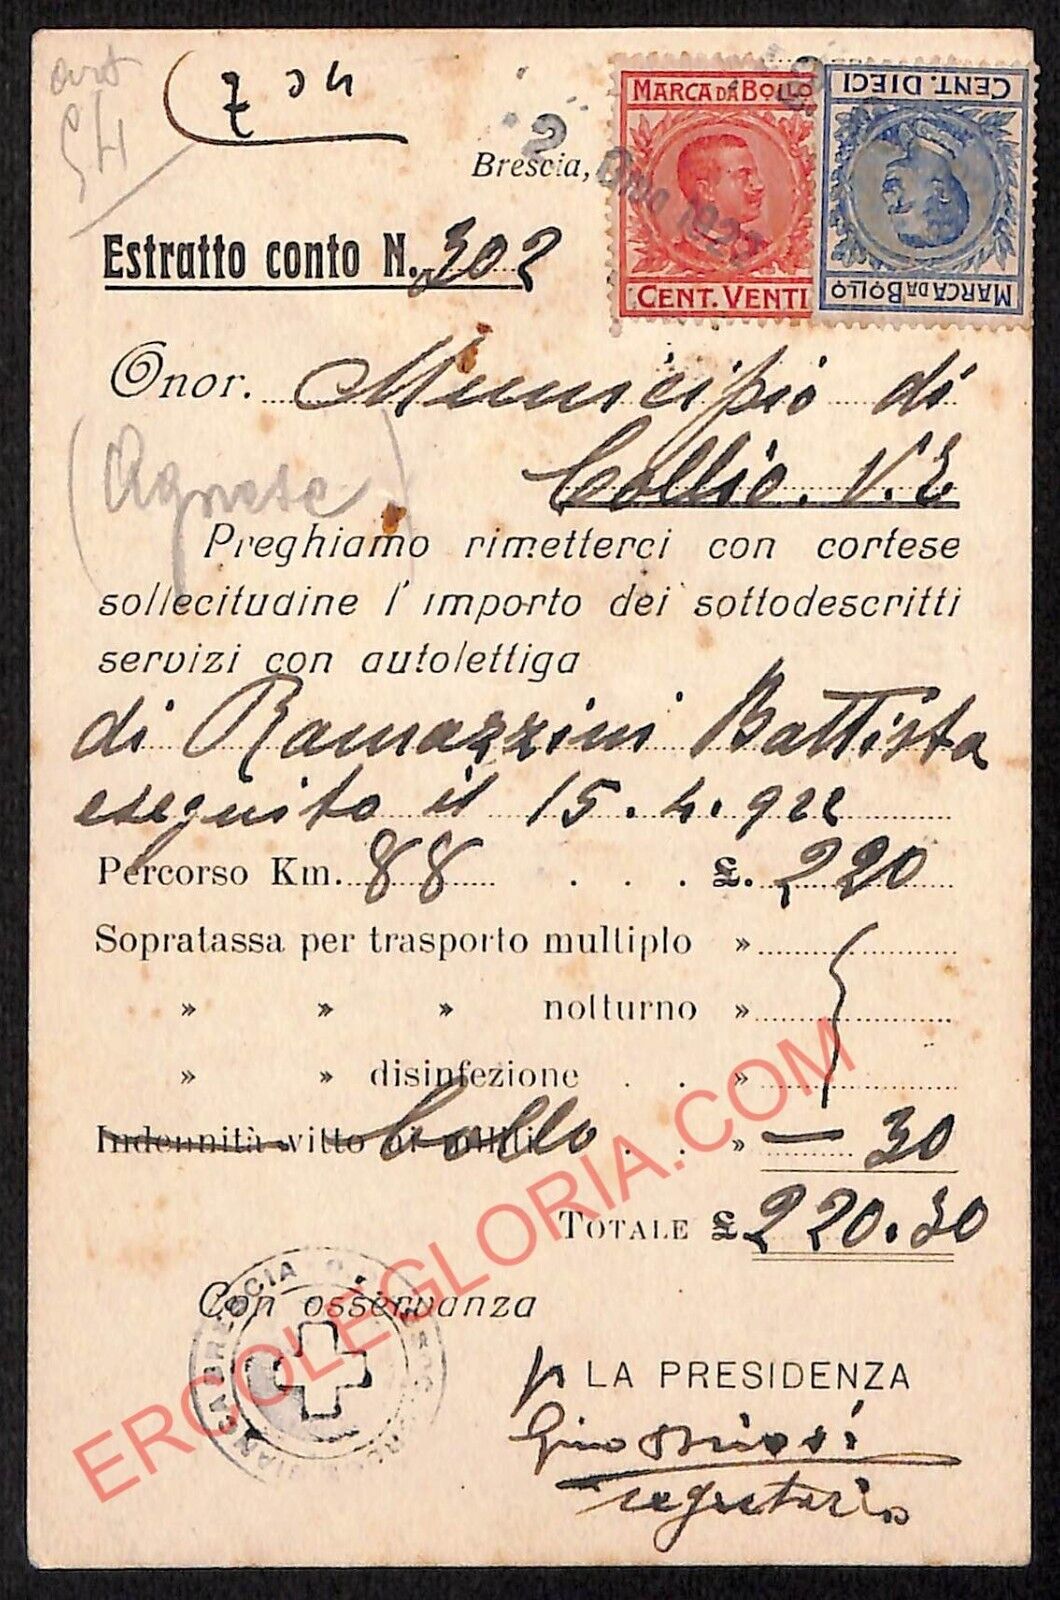 art
54
704
MARCA DA BOLLO
CENT. DIECI
2
Brescia, Giu 1922
Estratto conto N. 302
CENT. VENTI
MARCA DA BOLLO
Onor. Municipio di
Collio. V.T.
(Agnese)
Preghiamo rimetterci con cortese
sollecitudine l'importo dei sottodescritti
servizi con autolettiga
di Ramazzini Battista
eseguito il 15.4.922
Percorso Km. 88 . . . £. 220
Sopratassa per trasporto multiplo »
» » » notturno »
» » disinfezione . . »
Indennità vitto Bollo . . » — 30
TOTALE £ 220.30
Con osservanza
BRESCIA
BIANCA
p LA PRESIDENZA
Gino
segretario
ERCOLEGLORIA.COM